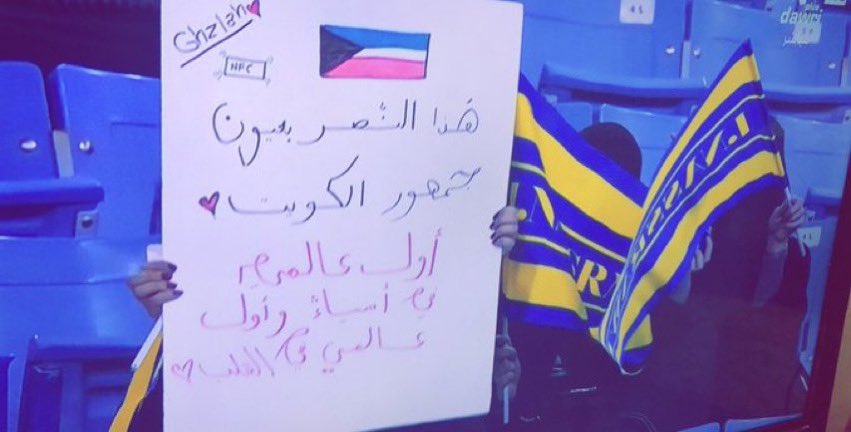 Ghzlah
NFC
هذا النصر بعيون
جمهور الكويت
أول عالمي
في أسيا وأول
عالمي في القلب
AL.NASSR
dawri
مباشر